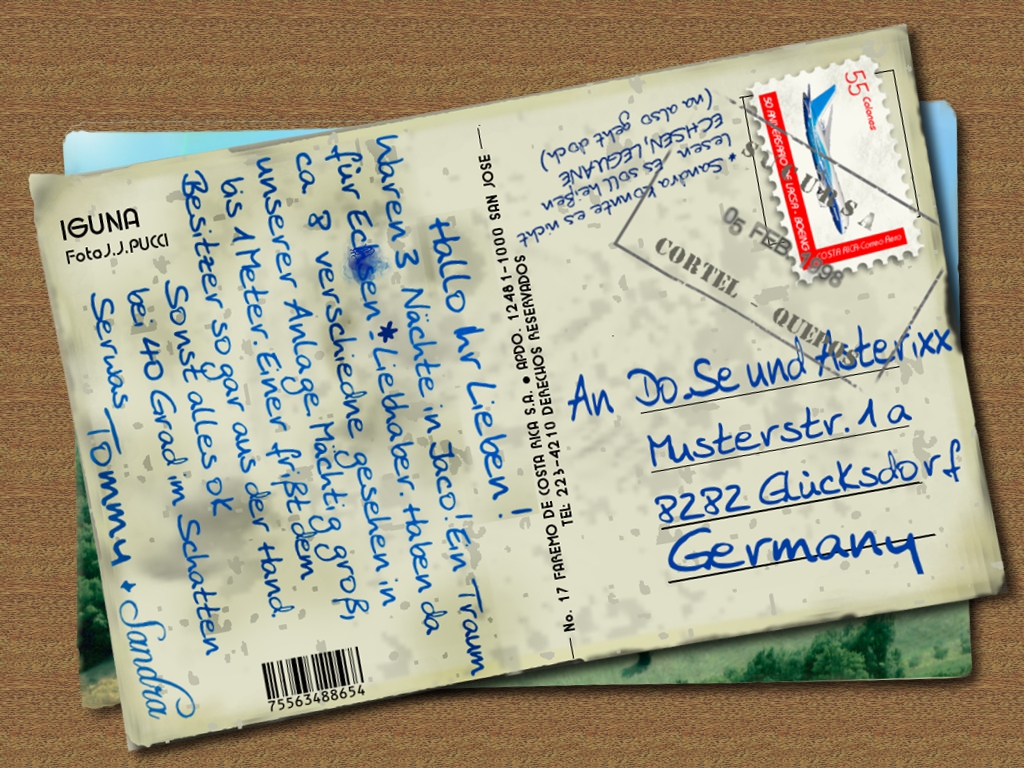 IGUNA
Foto J.J. PUCCI
Hallo Ihr Lieben!
Waren 3 Nächte in Jaco! Ein Traum
für Echsen * Liebhaber. Haben da
ca 8 verschiedne gesehen in
unserer Anlage. Mächtig groß,
bis 1 Meter. Einer frißt dem
Besitzer sogar aus der Hand
Sonst alles ok
bei 40 Grad im Schatten
Serwas Tommy + Sandra
75563488654
No. 17 FAREMO DE COSTA RICA S.A. • APDO. 12481-1000 SAN JOSE
TEL 223-4210 DERECHOS RESERVADOS
* Sandra konnte es nicht
lesen es soll heißen
ECHSEN, LEGUANE
(na also geht doch)
55 Colones
50 ANIVERSARIO DE LACSA - BOEING
COSTA RICA Correo Aereo
05 FEB. 1998
CORTEL - QUEROS
An Do.Se und Asterixx
Musterstr. 1a
8282 Glücksdorf
Germany